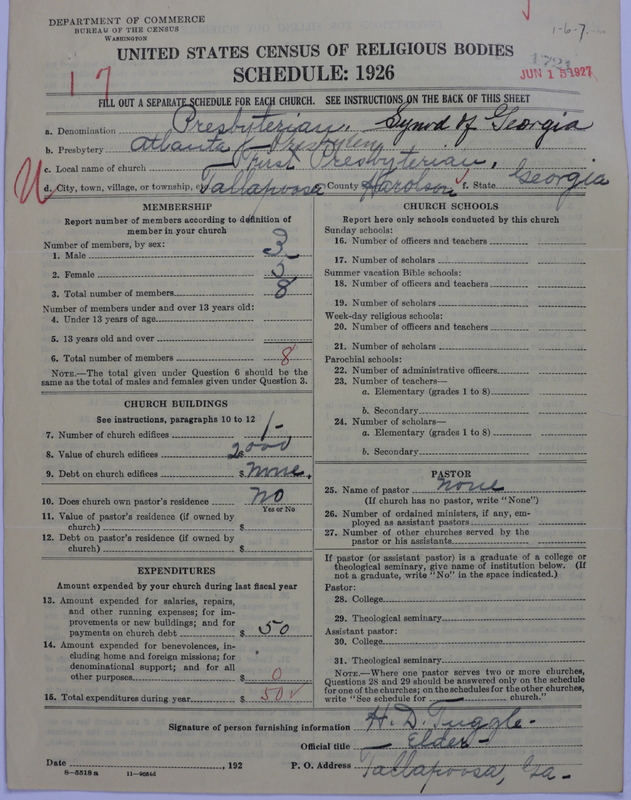 DEPARTMENT OF COMMERCE
BUREAU OF THE CENSUS
WASHINGTON
1-6-7.
UNITED STATES CENSUS OF RELIGIOUS BODIES
SCHEDULE: 1926
17
JUN 15 1927
FILL OUT A SEPARATE SCHEDULE FOR EACH CHURCH. SEE INSTRUCTIONS ON THE BACK OF THIS SHEET
a. Denomination Presbyterian, Synod of Georgia
b. Presbytery Atlanta Presbytery
c. Local name of church First Presbyterian,
d. City, town, village, or township, e. Tallapoosa County Haralson f. State Georgia
MEMBERSHIP
Report number of members according to definition of
member in your church
Number of members, by sex:
1. Male 3
2. Female 5
3. Total number of members 8
Number of members under and over 13 years old:
4. Under 13 years of age
5. 13 years old and over
6. Total number of members 8
NOTE.—The total given under Question 6 should be
same as the total of males and females given under Question 3.
CHURCH BUILDINGS
See instructions, paragraphs 10 to 12
7. Number of church edifices 1-
8. Value of church edifices 2000
9. Debt on church edifices $ None.
10. Does church own pastor's residence No
Yes or No
11. Value of pastor's residence (if owned by
church) $
12. Debt on pastor's residence (if owned by
church) $
EXPENDITURES
Amount expended by your church during last fiscal year
13. Amount expended for salaries, repairs,
and other running expenses; for im-
provements or new buildings; and for
payments on church debt $ 50
14. Amount expended for benevolences, in-
cluding home and foreign missions; for
denominational support; and for all
other purposes $ 0
15. Total expenditures during year $ 50
CHURCH SCHOOLS
Report here only schools conducted by this church
Sunday schools:
16. Number of officers and teachers
17. Number of scholars
Summer vacation Bible schools:
18. Number of officers and teachers
19. Number of scholars
Week-day religious schools:
20. Number of officers and teachers
21. Number of scholars
Parochial schools:
22. Number of administrative officers
23. Number of teachers—
a. Elementary (grades 1 to 8)
b. Secondary
24. Number of scholars—
a. Elementary (grades 1 to 8)
b. Secondary
PASTOR
25. Name of pastor None
(If church has no pastor, write "None")
26. Number of ordained ministers, if any, em-
ployed as assistant pastors
27. Number of other churches served by the
pastor or his assistants
If pastor (or assistant pastor) is a graduate of a college or
theological seminary, give name of institution below. (If
not a graduate, write "No" in the space indicated.)
Pastor:
28. College
29. Theological seminary
Assistant pastor:
30. College
31. Theological seminary
NOTE.—Where one pastor serves two or more churches,
Questions 28 and 29 should be answered only on the schedule
for one of the churches; on the schedules for the other churches,
write "See schedule for church."
Signature of person furnishing information H. D. Tuggle-
Official title — Elder —
Date , 192 P. O. Address Tallapoosa, Ga-
8-5518a